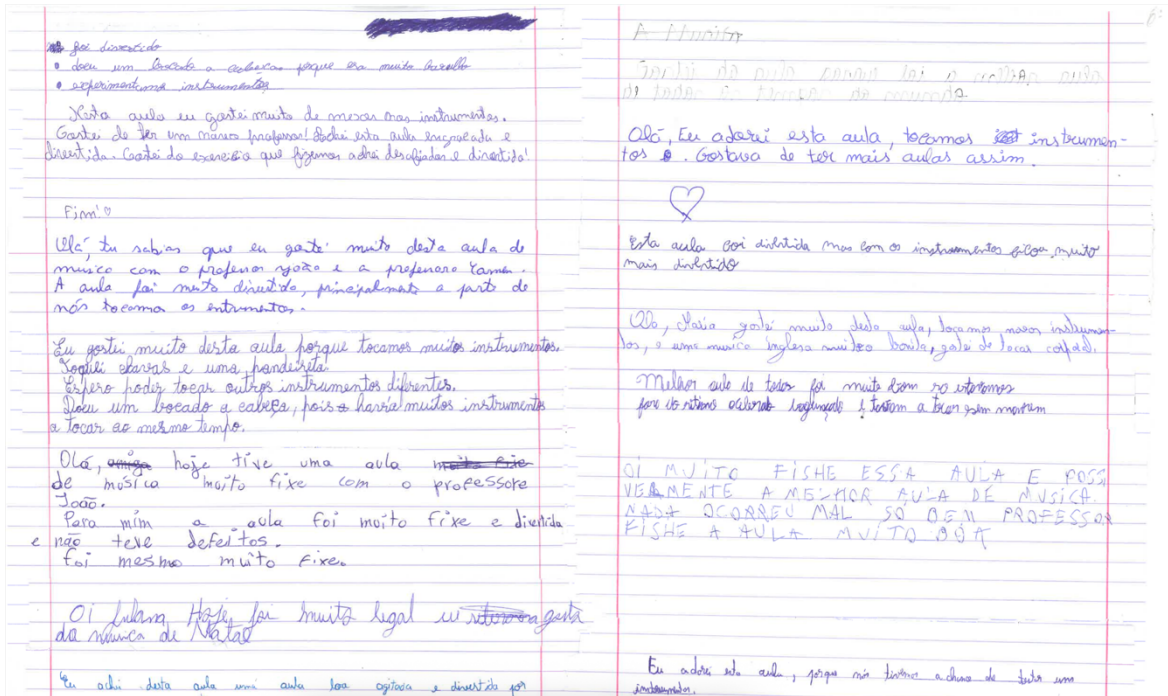 foi divertido
• doeu um bocado a cabeça porque era muito barulho
• experimentamos instrumentos
Nesta aula eu gostei muito de mexer nos instrumentos.
Gostei de ter um novo professor! Achei esta aula engraçada e
divertida. Gostei do exercicio que fizemos achei desafiador e divertido!
Fim! ♡
Olá, tu sabias que eu gostei muito desta aula de
musica com o professor João e a professora
A aula foi muito divertida, principalmente a parte de
nós tocamos os entrumentos.
Eu gostei muito desta aula porque tocamos muitos instrumentos.
Toquei clavas e uma pandeireta.
Espero poder tocar outros instrumentos diferentes.
Doeu um bocado a cabeça, pois havia muitos instrumentos
a tocar ao mesmo tempo.
Olá, hoje tive uma aula
de música muito fixe com o professore
João.
Para mim a aula foi muito fixe e divertida
e não teve defeitos.
foi mesmo muito fixe.
Oi Hoje foi muito legal eu gosta
da música de Natal
Eu achei desta aula uma aula boa agitada e divertida por
da aula foi a melhor aula
de todas do mundo
Olá, Eu adorei esta aula, tocamos instrumen-
tos. Gostava de ter mais aulas assim.
Esta aula foi divertida mas com os instrumentos ficou muito
mais divertido
Maria gostei muito desta aula, tocamos novos instrumen-
tos, e uma musica inglesa muitoo bonita, gostei de tocar
Melhor aula de todas foi muito bom
sem
OI MUITO FISHE ESSA AULA E POSSI
VELMENTE A MELHOR AULA DE MUSICA
NADA OCORREU MAL SÓ BEM PROFESSOR
FISHE A AULA MUITO BOA
Eu adorei esta aula, porque nós tivemos a de um
instrumentos.